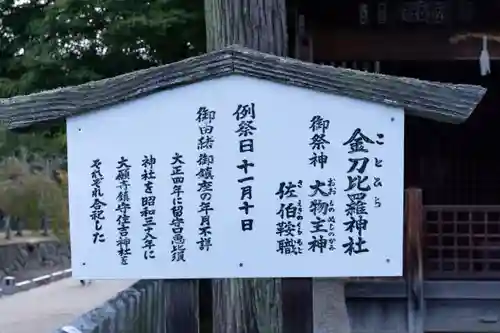 金刀比羅神社
ことひら
御祭神 大物主神
おおものぬしのかみ
佐伯鞍職
さえきのくらもと
例祭日 十一月十日
御由緒 御鎮座の年月不詳
大正四年に留守
神社を昭和三八年に
大願寺鎮守住吉神社を
それぞれ合祀した